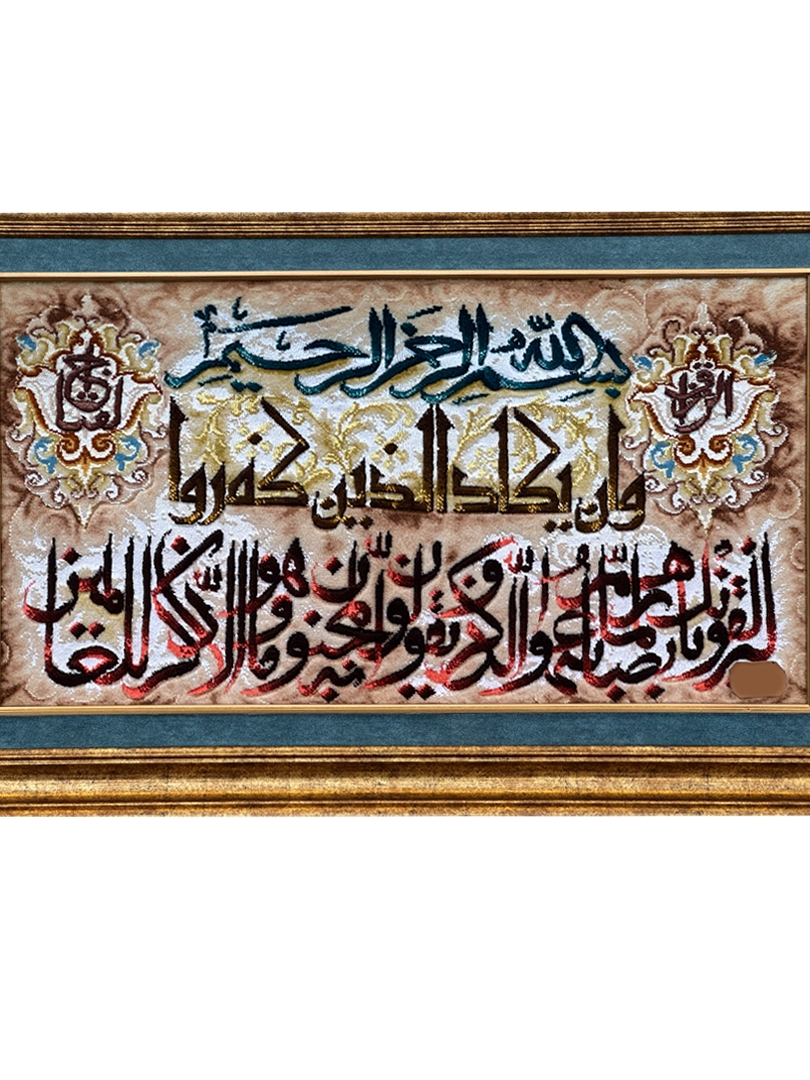 بسم الله الرحمن الرحیم
وان یکاد الذین کفروا
لیزلقونک بابصارهم لما سمعوا الذکر و یقولون انه لمجنون و ما هو الا ذکر للعالمین
یا رزاق
یا فتاح